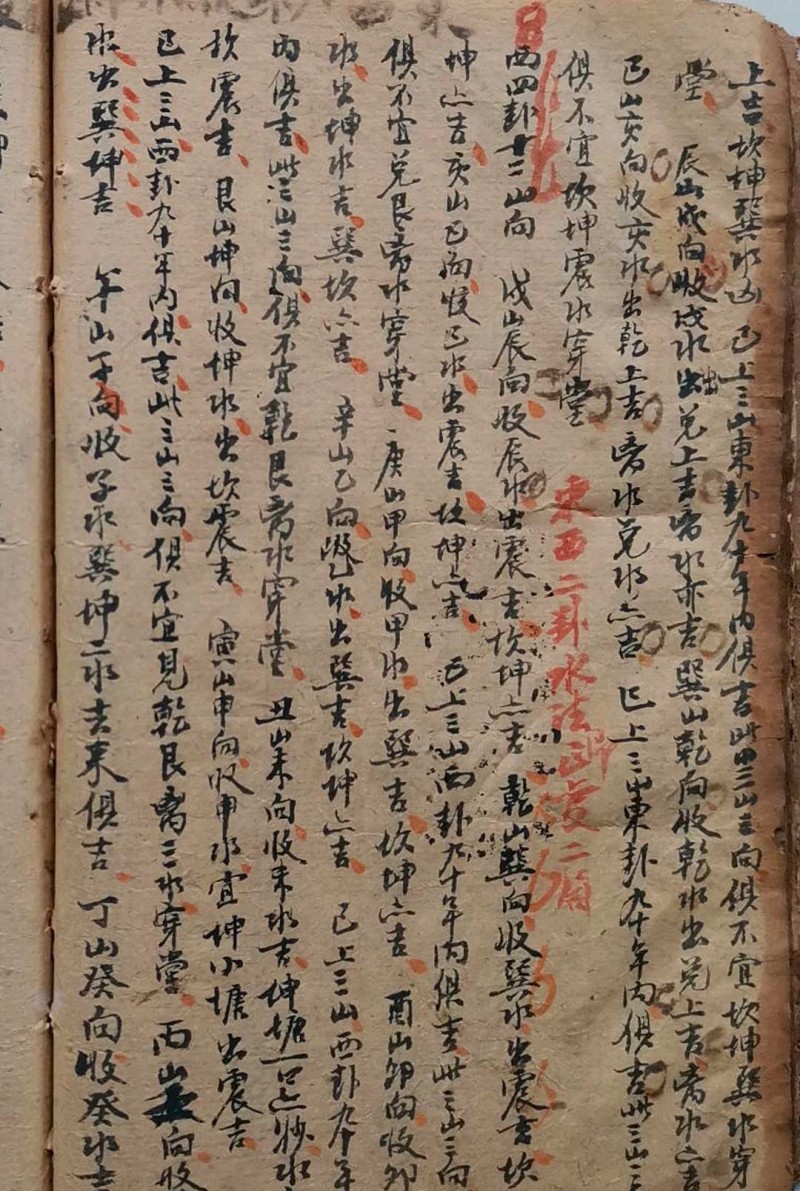 上吉坎坤巽水凶 已上三山東卦九十年内俱吉此三山三向俱不宜坎坤巽水穿
堂 辰山戌向收戌水出兑上吉离水亦吉巽山乾向收乾水出兑上吉离水亠吉
巳山亥向收亥水出乾上吉离水兑水亠吉 已上三山東卦九十年内俱吉此三山三
俱不宜坎坤震水穿堂 東西二卦水法
西四卦十二山向 戌山辰向收辰水出震吉坎坤亠吉 乾山巽向收巽水出震吉坎
坤亠吉亥山巳向收巳水出震吉坎坤亠吉 已上三山西卦九十年内俱吉此三山三向
俱不宜兑艮离水穿堂 庚山甲向收甲水出巽吉坎坤亠吉 酉山卯向收卯
水出坤水吉巽坎亠吉 辛山乙向收乙水出巽吉坎坤亠吉 已上三山西卦九十年
内俱吉此三山三向俱不宜乾艮离水穿堂 丑山未向收未水吉坤塘一口亠妙水
坎震吉 艮山坤向收坤水出坎震吉 寅山申向收申水宜坤小塘出震吉
已上三山西卦九十年内俱吉此三山三向俱不宜見乾艮离三水穿堂 丙山壬向收
水出巽坤吉 午山子向收子水巽坤二水去来俱吉 丁山癸向收癸水吉